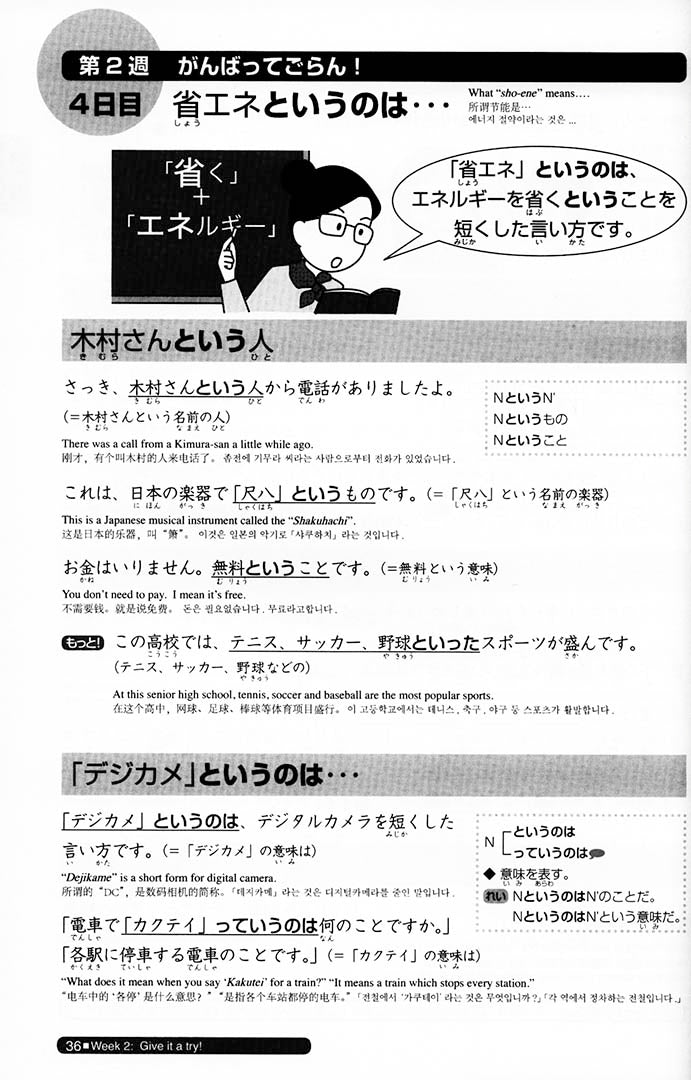 第２週　がんばってごらん！
4日目　省エネというのは・・・
しょう
What “sho-ene” means….
所谓节能是…
에너지 절약이라는 것은 ...
「省く」
+
「エネルギー」
「省エネ」というのは、
しょう
エネルギーを省くということを
はぶ
短くした言い方です。
みじか　い　かた
木村さんという人
きむら　ひと
さっき、木村さんという人から電話がありましたよ。
きむら　ひと　でんわ
(=木村さんという名前の人)
きむら　なまえ　ひと
There was a call from a Kimura-san a little while ago.
刚才，有个叫木村的人来电话了。 좀전에 기무라 씨라는 사람으로부터 전화가 있었습니다.
NというN'
Nというもの
Nということ
これは、日本の楽器で「尺八」というものです。(=「尺八」という名前の楽器)
にほん　がっき　しゃくはち　しゃくはち　なまえ　がっき
This is a Japanese musical instrument called the “Shakuhachi”.
这是日本的乐器，叫“箫”。 이것은 일본의 악기로「샤쿠하치」라는 것입니다.
お金はいりません。無料ということです。(=無料という意味)
かね　むりょう　むりょう　いみ
You don't need to pay. I mean it's free.
不需要钱。就是说免费。 돈은 필요없습니다. 무료라고합니다.
もっと！ この高校では、テニス、サッカー、野球といったスポーツが盛んです。
こうこう　やきゅう　さか
(テニス、サッカー、野球などの)
やきゅう
At this senior high school, tennis, soccer and baseball are the most popular sports.
在这个高中，网球、足球、棒球等体育项目盛行。 이 고등학교에서는 테니스, 축구, 야구 등 스포츠가 활발합니다.
「デジカメ」というのは・・・
「デジカメ」というのは、デジタルカメラを短くした
みじか
言い方です。(=「デジカメ」の意味は)
い　かた　いみ
“Dejikame” is a short form for digital camera.
所谓的“DC”，是数码相机的简称。「데지카메」라는 것은 디지털카메라를 줄인 말입니다.
N
というのは
っていうのは
◆ 意味を表す。
いみ　あらわ
れい NというのはN'のことだ。
NというのはN'という意味だ。
いみ
「電車で「カクテイ」っていうのは何のことですか。」
でんしゃ　なん
「各駅に停車する電車のことです。」(=「カクテイ」の意味は)
かくえき　ていしゃ　でんしゃ　いみ
“What does it mean when you say ‘Kakutei’ for a train?” “It means a train which stops every station.”
“电车中的‘各停’是什么意思？” “是指各个车站都停的电车。”「전철에서 '가쿠테이' 라는 것은 무엇입니까?」「각 역에서 정차하는 전철입니다.」
36■Week 2: Give it a try!